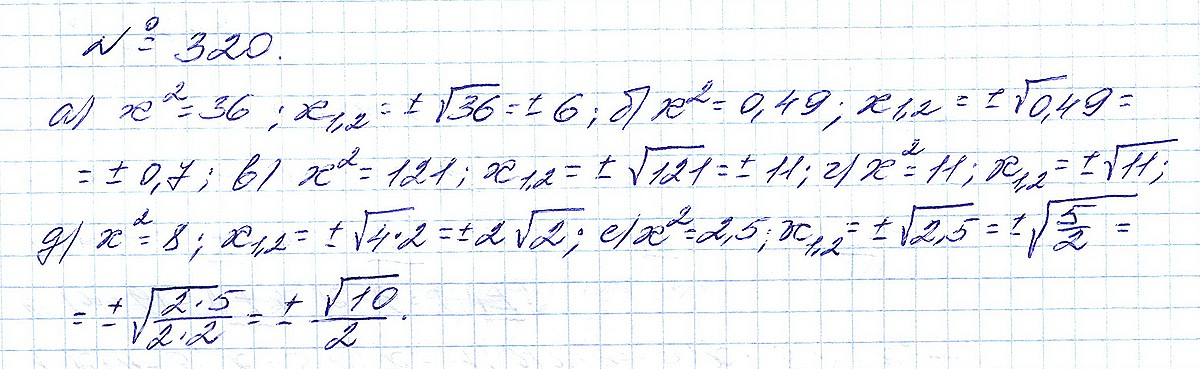 № 320.
а) x² = 36 ; x₁,₂ = ± √36 = ± 6 ; б) x² = 0,49 ; x₁,₂ = ± √0,49 =
= ± 0,7 ; в) x² = 121 ; x₁,₂ = ± √121 = ± 11 ; г) x² = 11 ; x₁,₂ = ± √11 ;
д) x² = 8 ; x₁,₂ = ± √4·2 = ± 2 √2 ; е) x² = 2,5 ; x₁,₂ = ± √2,5 = ± √5/2 =
= ± √2·5/2·2 = ± √10/2 .